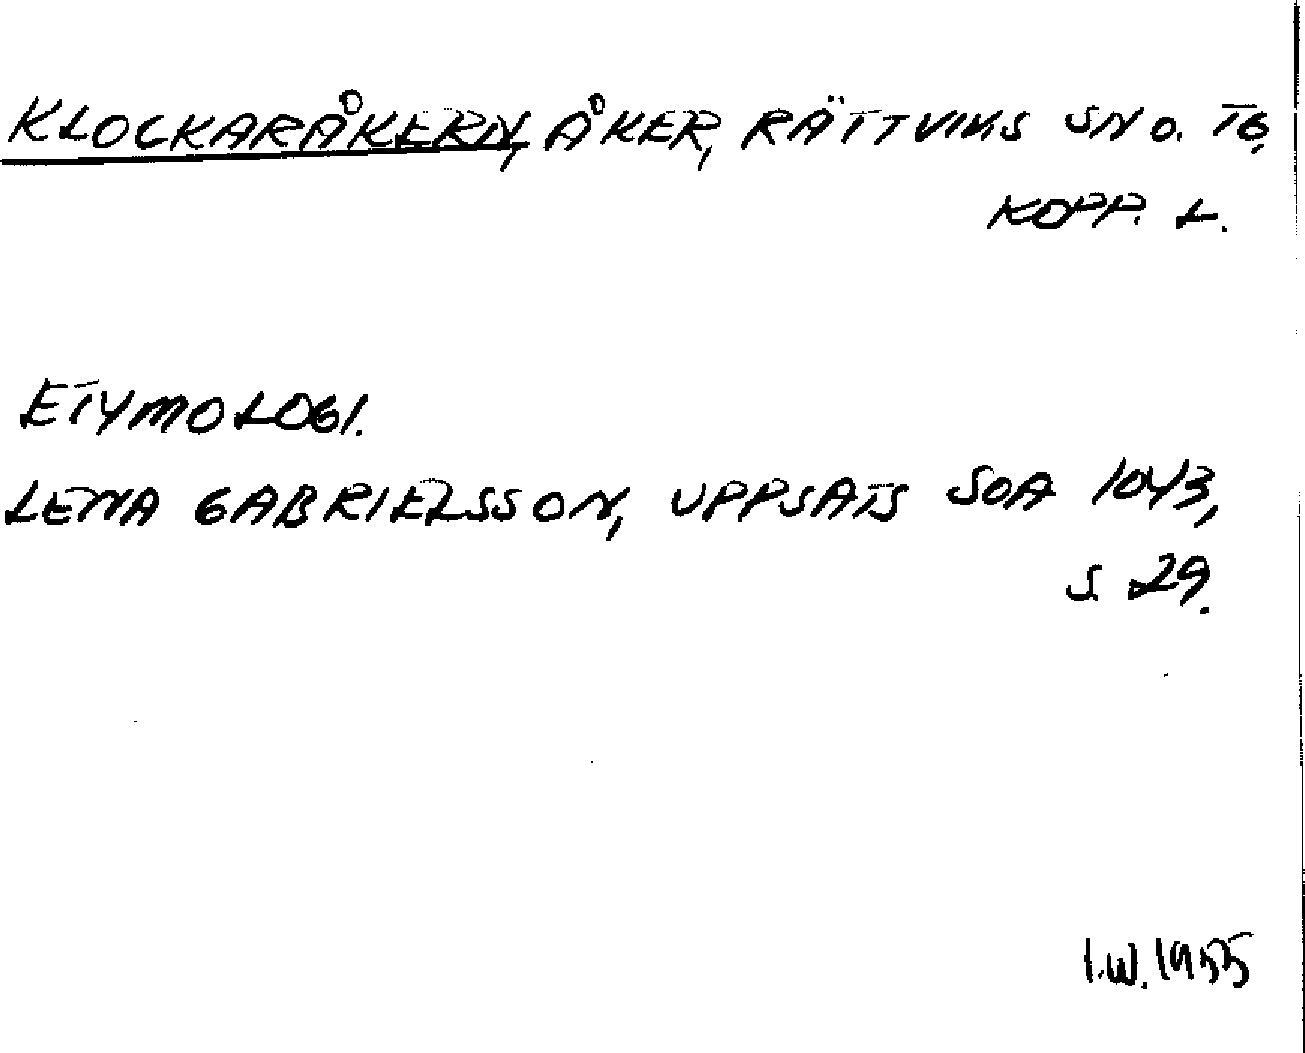 KLOCKARÅKERN, ÅKER, RÄTTVIKS SN O. TG,
KOPP. L.
ETYMOLOGI.
LENA GABRIELSSON, UPPSATS SOA 1043,
S 29.
I.W. 1955